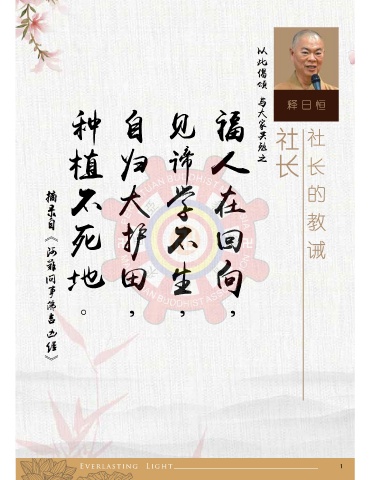 释日恒
社长
社长的教诫
以此偈颂 与大家共勉之
福人在回向，
见谛学不生，
自归大护田，
种植不死地。
摘录自《阿难问事佛吉凶经》
EVERLASTING LIGHT
1